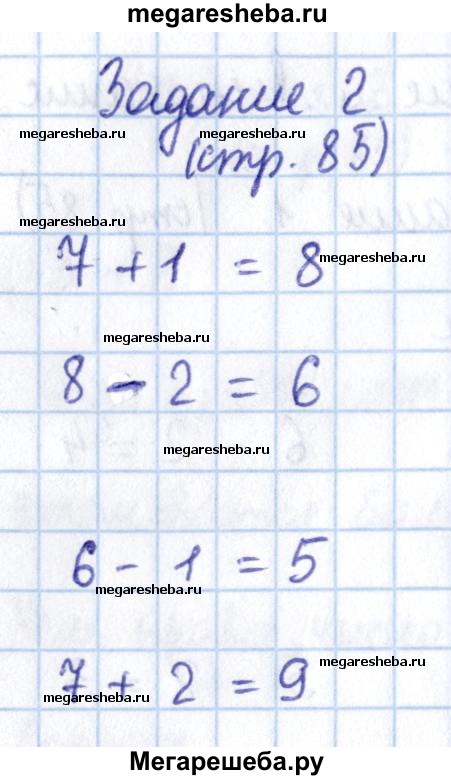 megaresheba.ru
Задание 2
megaresheba.ru megaresheba.ru
(стр. 85)
megaresheba.ru
7 + 1 = 8 megaresheba.ru
megaresheba.ru
8 - 2 = 6
megaresheba.ru
megaresheba.ru
6 - 1 = 5
megaresheba.ru
megaresheba.ru
7 + 2 = 9
megaresheba.ru megaresheba.ru
Мегарешеба.ру